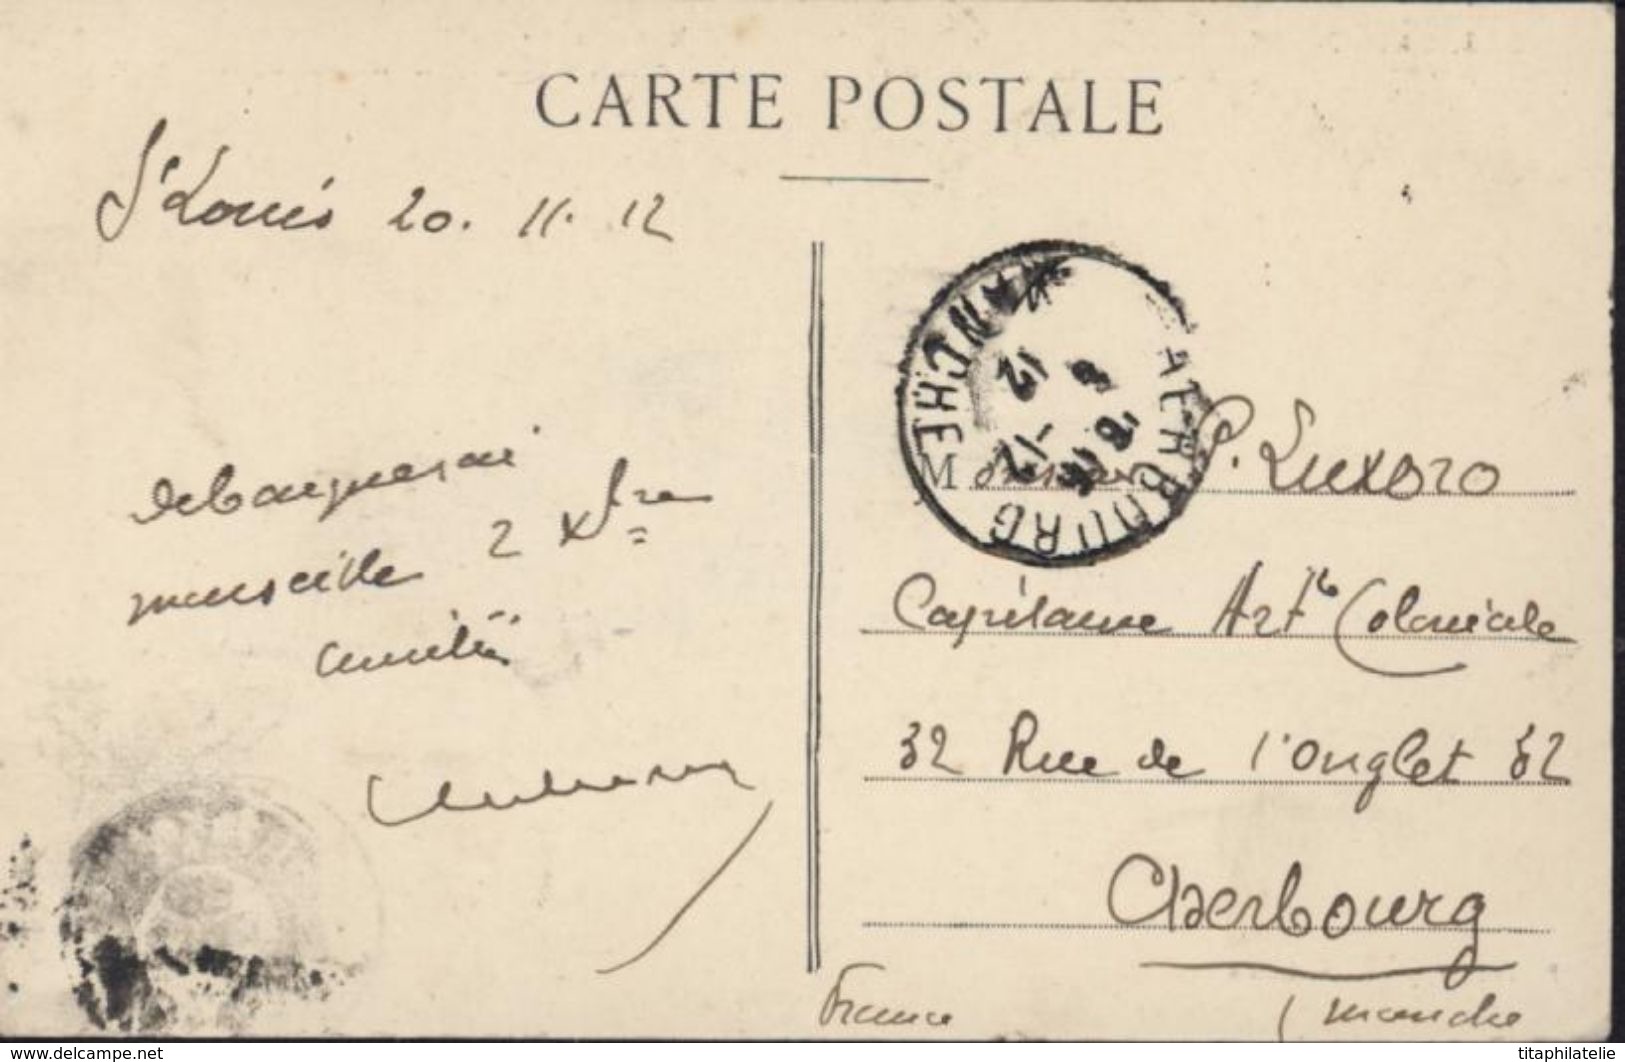 CARTE POSTALE
St Louis 20. 11. 12
debarquerai
marseille 2 Xbre
amitiés
CHERBOURG
MANCHE
8 12 - 12
Monsieur P. Luxoro
Capitaine Artie Coloniale
32 Rue de l'onglet 32
Cherbourg
France (manche
www.delcampe.net
titaphilatelie